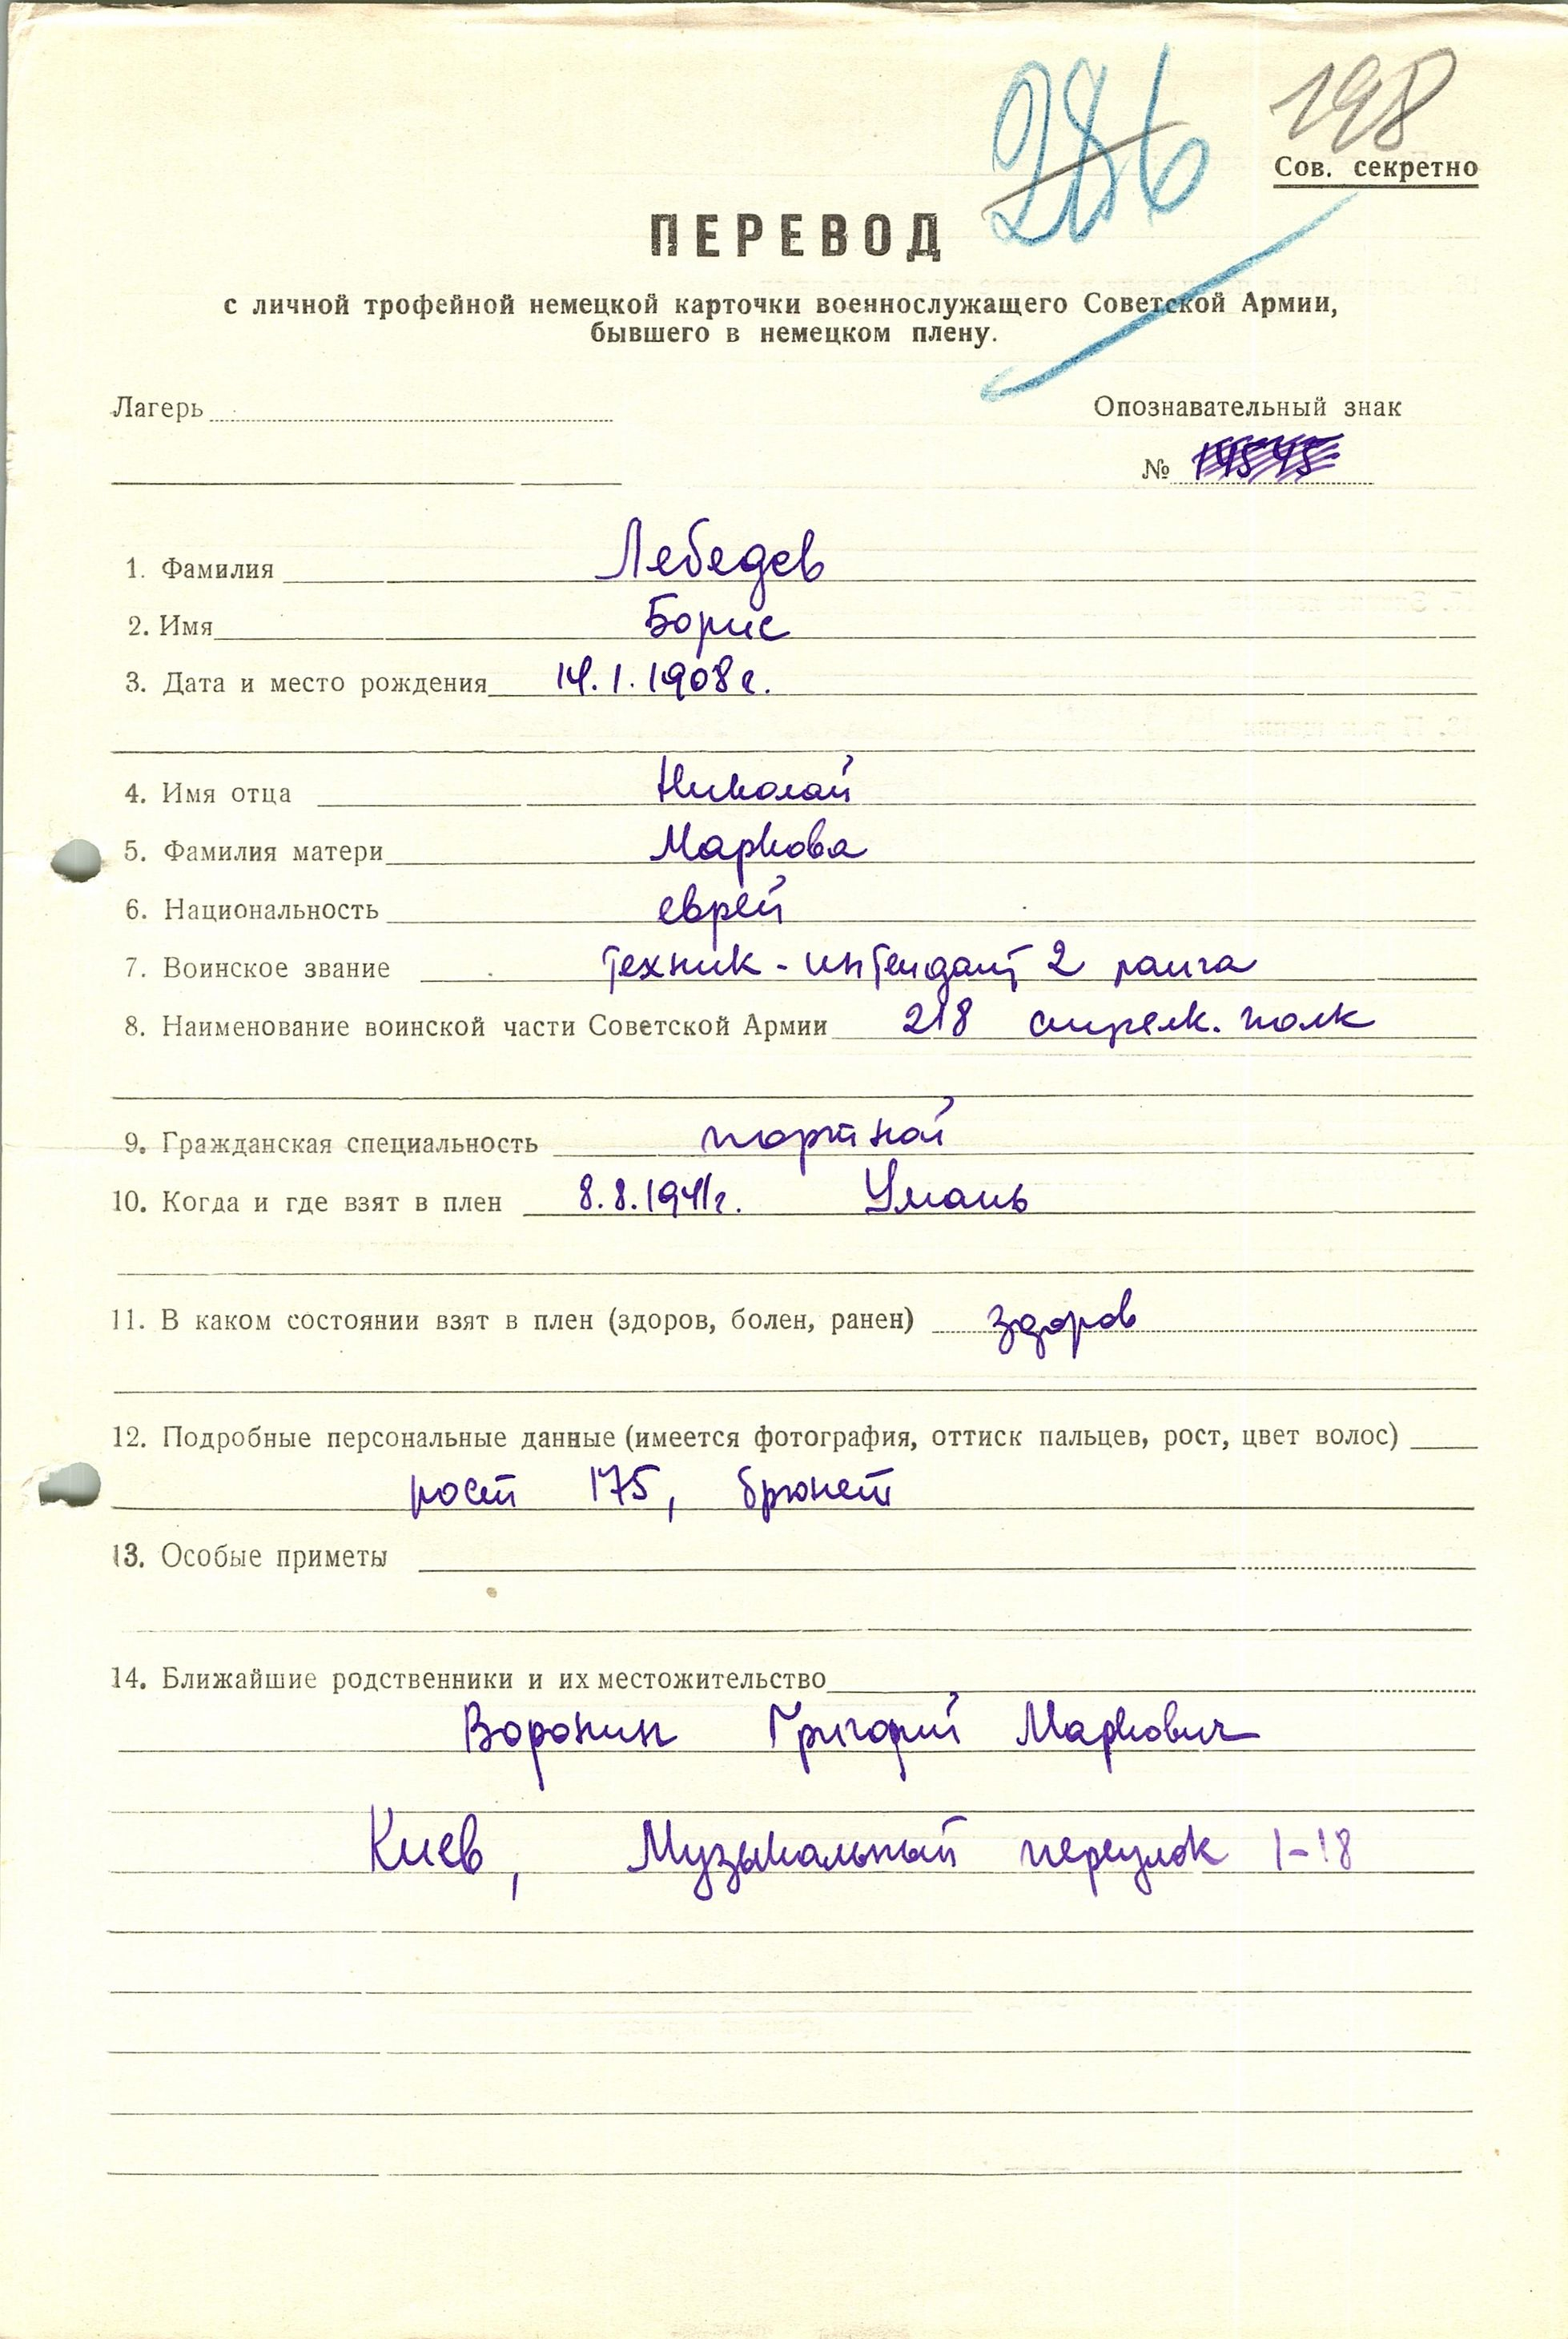 286 198
Сов. секретно
ПЕРЕВОД
с личной трофейной немецкой карточки военнослужащего Советской Армии,
бывшего в немецком плену.
Лагерь Опознавательный знак
№
1. Фамилия Лебедев
2. Имя Борис
3. Дата и место рождения 14.1.1908г.
4. Имя отца Николай
5. Фамилия матери Маркова
6. Национальность еврей
7. Воинское звание техник-интендант 2 ранга
8. Наименование воинской части Советской Армии 218 стрелк. полк
9. Гражданская специальность портной
10. Когда и где взят в плен 8.8.1941г. Умань
11. В каком состоянии взят в плен (здоров, болен, ранен) здоров
12. Подробные персональные данные (имеется фотография, оттиск пальцев, рост, цвет волос)
рост 175, брюнет
13. Особые приметы
14. Ближайшие родственники и их местожительство
Воронин Григорий Маркович
Киев, Музыкальный переулок 1-18